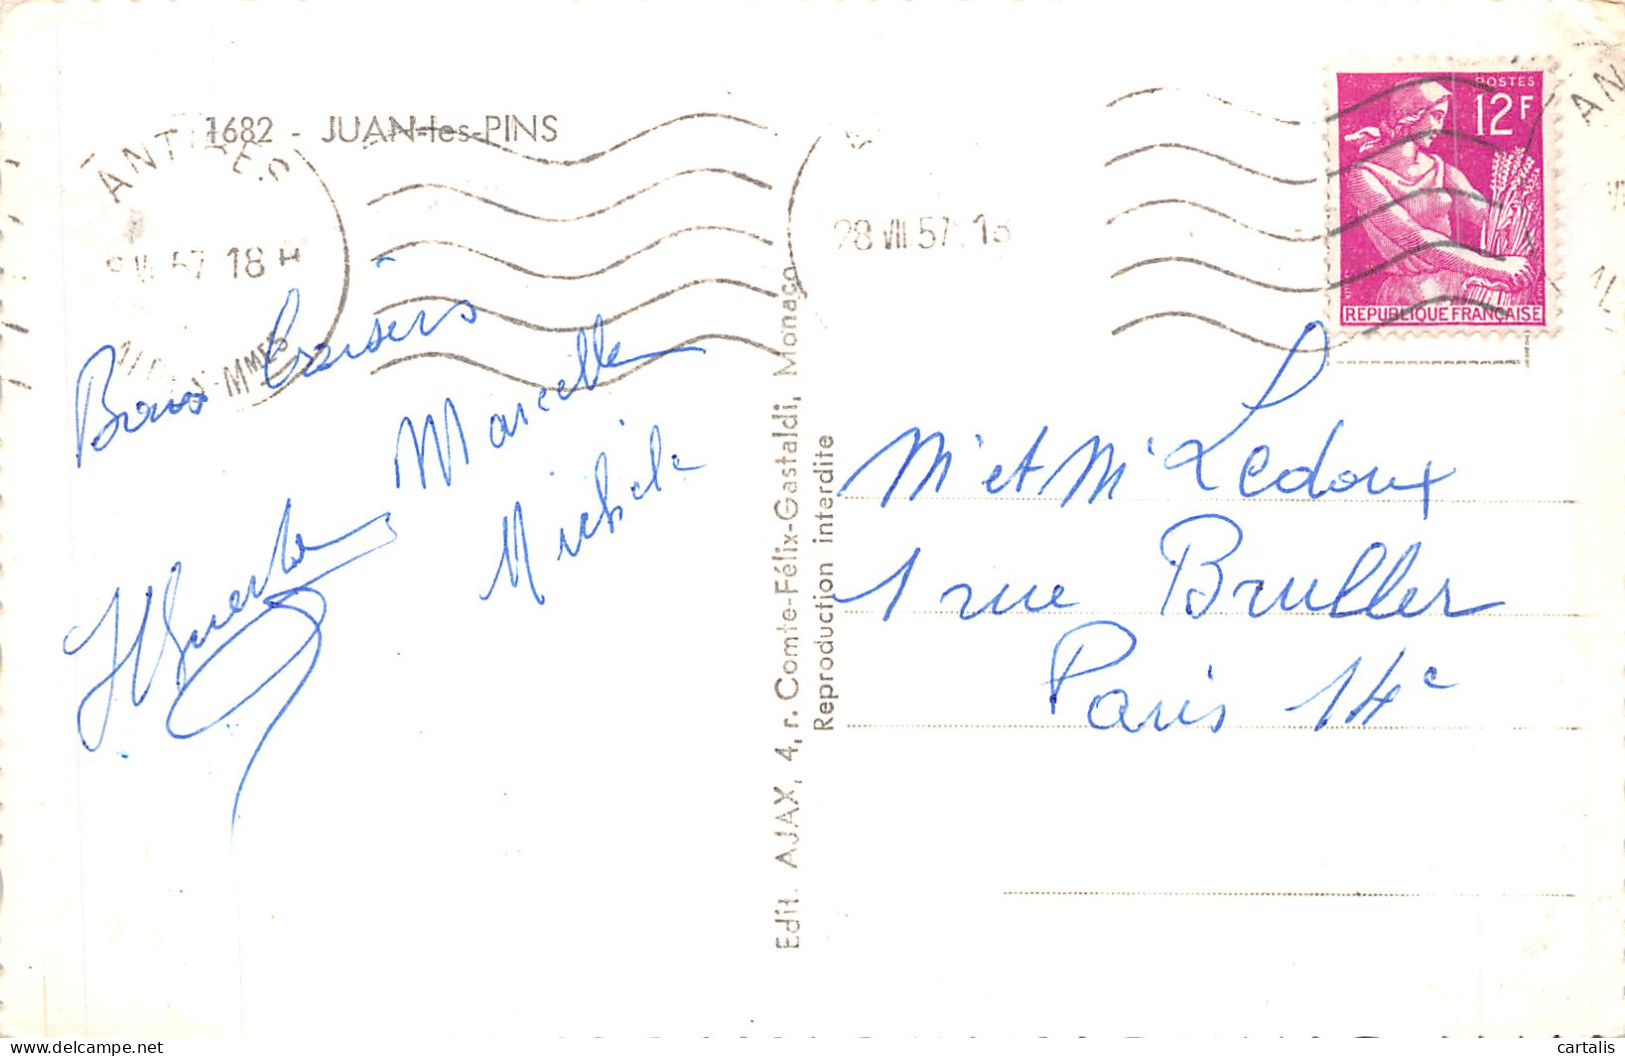 1682 - JUAN-les-PINS
18 H
28 VII 57
POSTES
12F
REPUBLIQUE FRANÇAISE
Bons Baisers
Marcelle
Michele
Edit. AJAX, 4, r. Comte-Félix-Gastaldi, Monaco
Reproduction interdite
Mr et M Ledoux
1 rue Bruller
Paris 14e
www.delcampe.net
cartalis